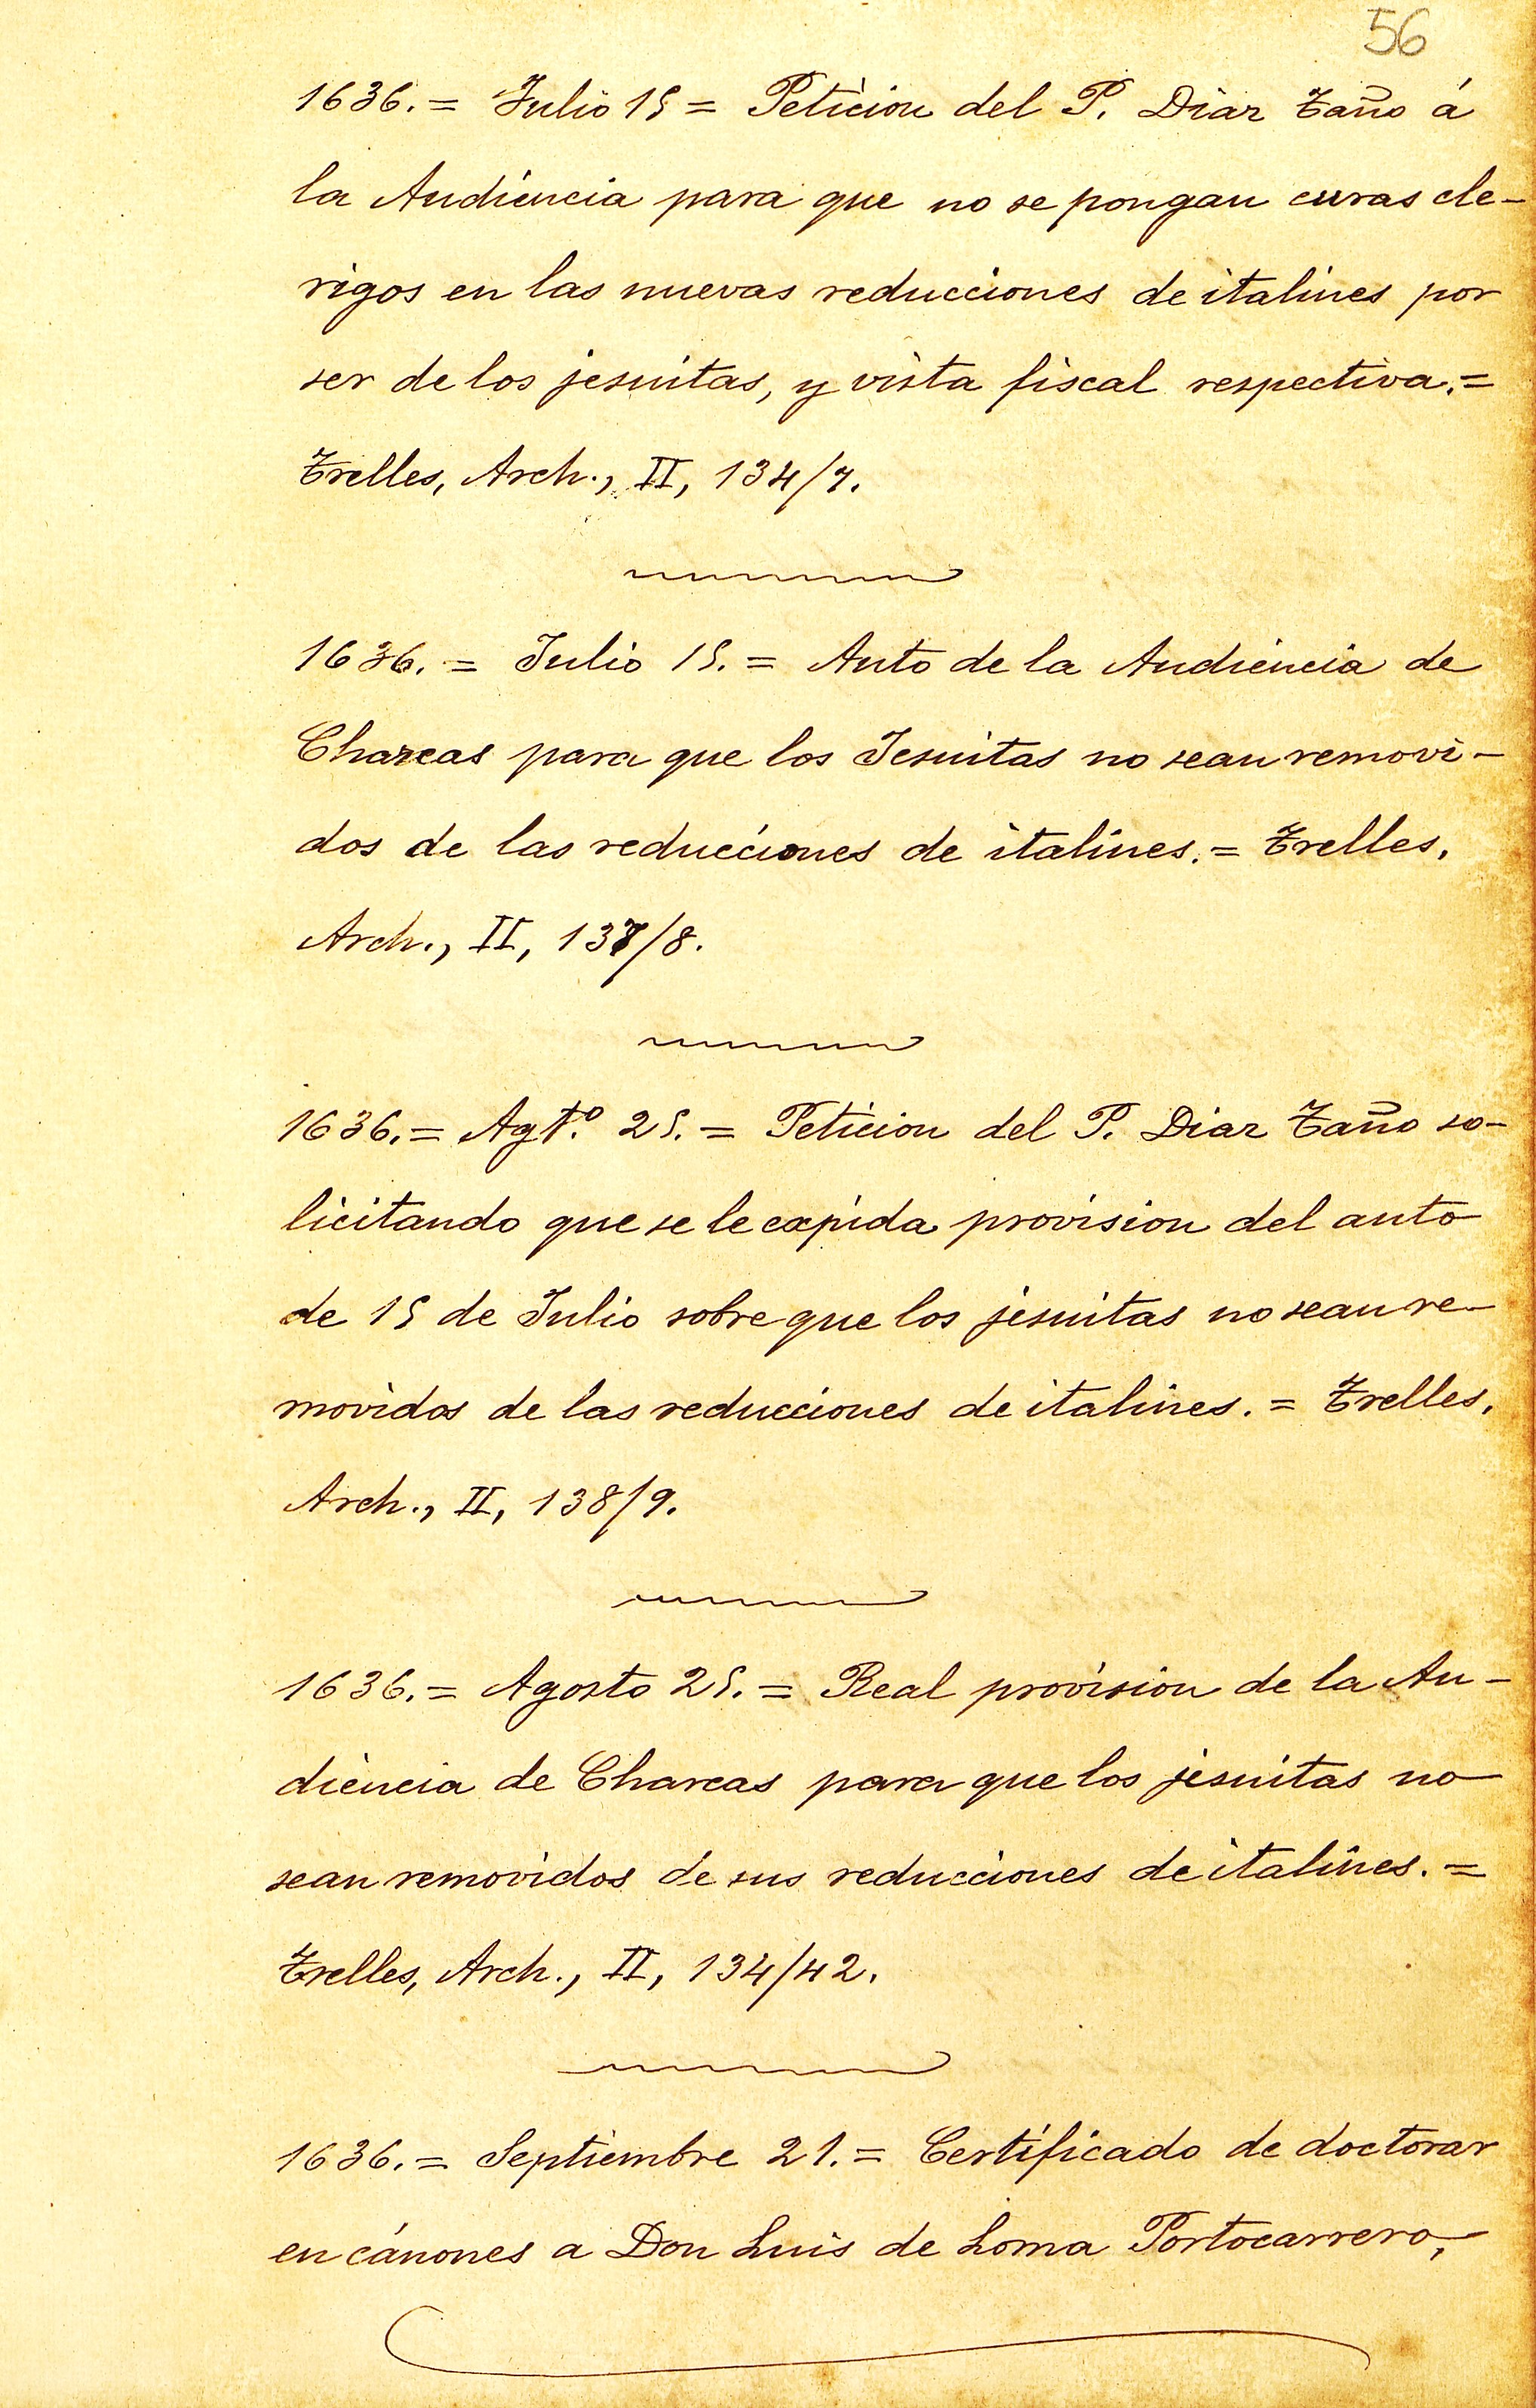 56
1636. = Julio 15 = Peticion del P. Diaz Taño á
la Audiencia para que no se pongan curas cle-
rigos en las nuevas reducciones de italines por
ser de los jesuitas, y vista fiscal respectiva. =
Trelles, Arch., II, 134/7.
1636. = Julio 15. = Auto de la Audiencia de
Charcas para que los Jesuitas no sean removi-
dos de las reducciones de italines. = Trelles,
Arch., II, 137/8.
1636. = Agtº. 25. = Peticion del P. Diaz Taño so-
licitando que se le expida provision del auto
de 15 de Julio sobre que los jesuitas no sean re-
movidos de las reducciones de italines. = Trelles,
Arch., II, 138/9.
1636. = Agosto 25. = Real provision de la Au-
diencia de Charcas para que los jesuitas no
sean removidos de sus reducciones de italines. =
Trelles, Arch., II, 134/42.
1636. = Septiembre 21. = Certificado de doctorar
en cánones a Don Luis de Loma Portocarrero,